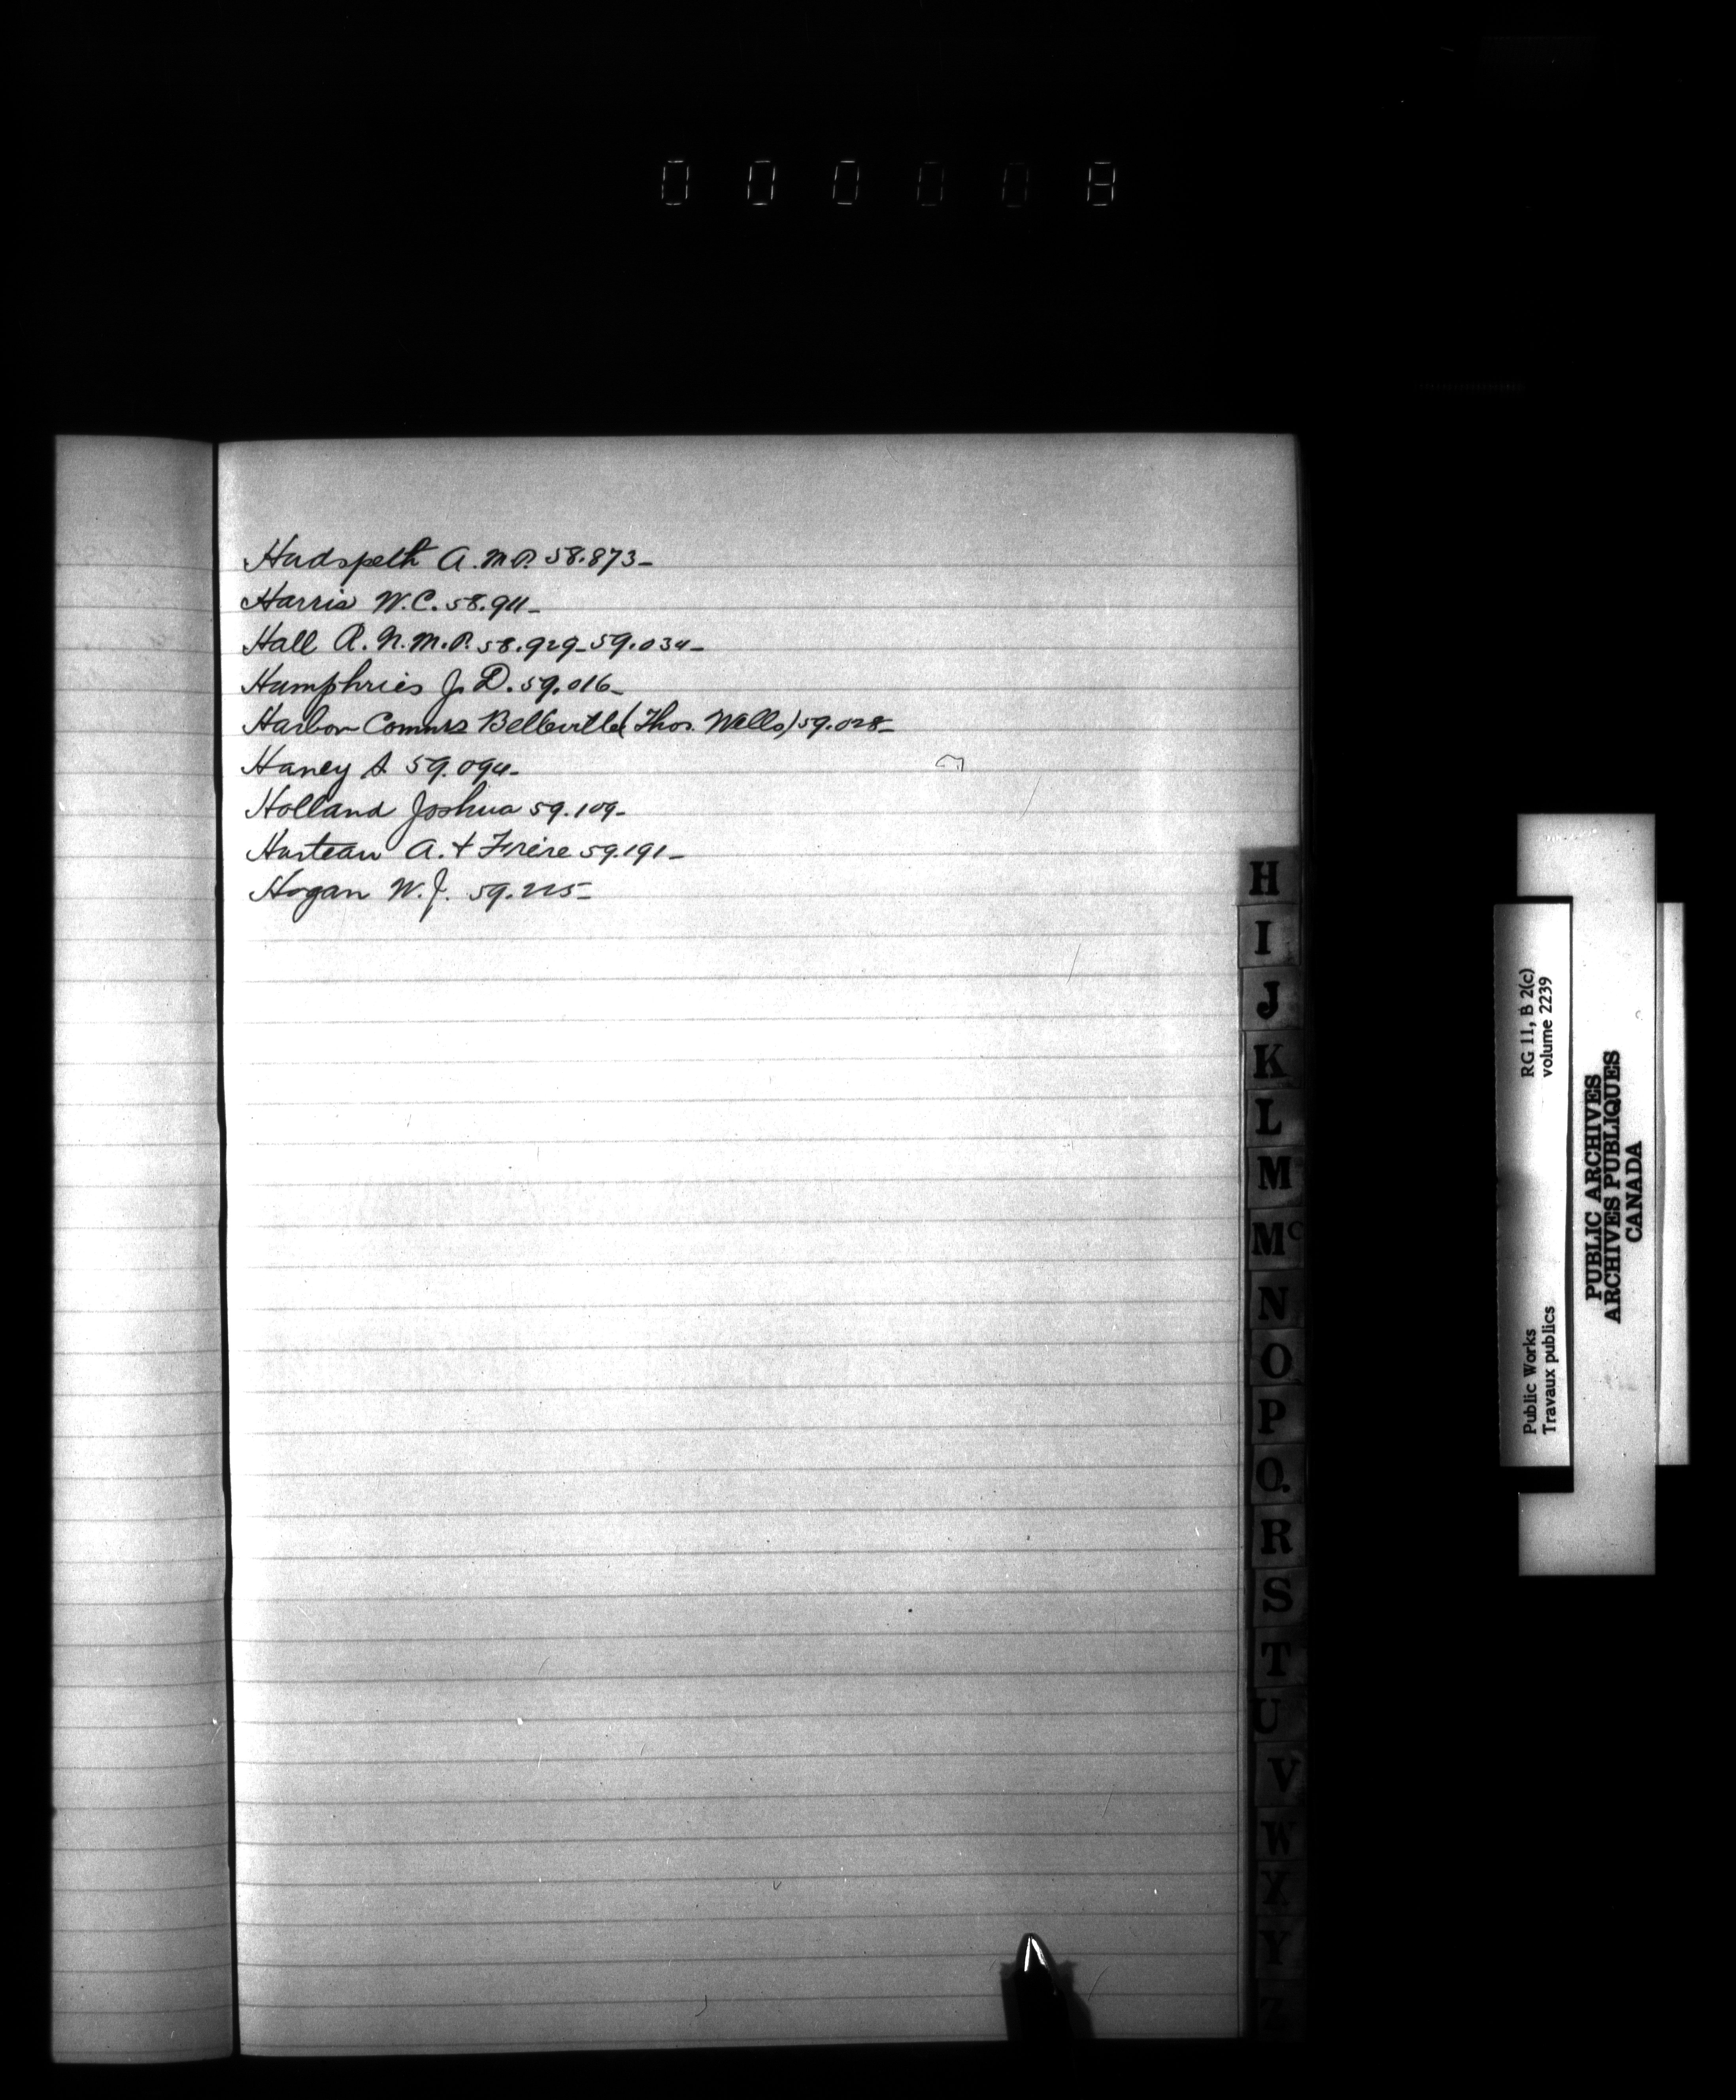 000008
Hudspeth A. M.P. 58.873_
Harris W.C. 58.911_
Hall R.N. M.P. 58.929_59.034_
Humphries J.D. 59.016_
Harbor Commrs Belleville (Thos. Wills) 59.028_
Haney A 59.094_
Holland Joshua 59.109_
Hurteau A. & Frère 59.191_
Hogan W.J. 59.225_
H
I
J
K
L
M
Mc
N
O
P
Q
R
S
T
U
V
W
X
Y
Z
Public Works
Travaux publics
RG 11, B 2(c)
volume 2239
PUBLIC ARCHIVES
ARCHIVES PUBLIQUES
CANADA